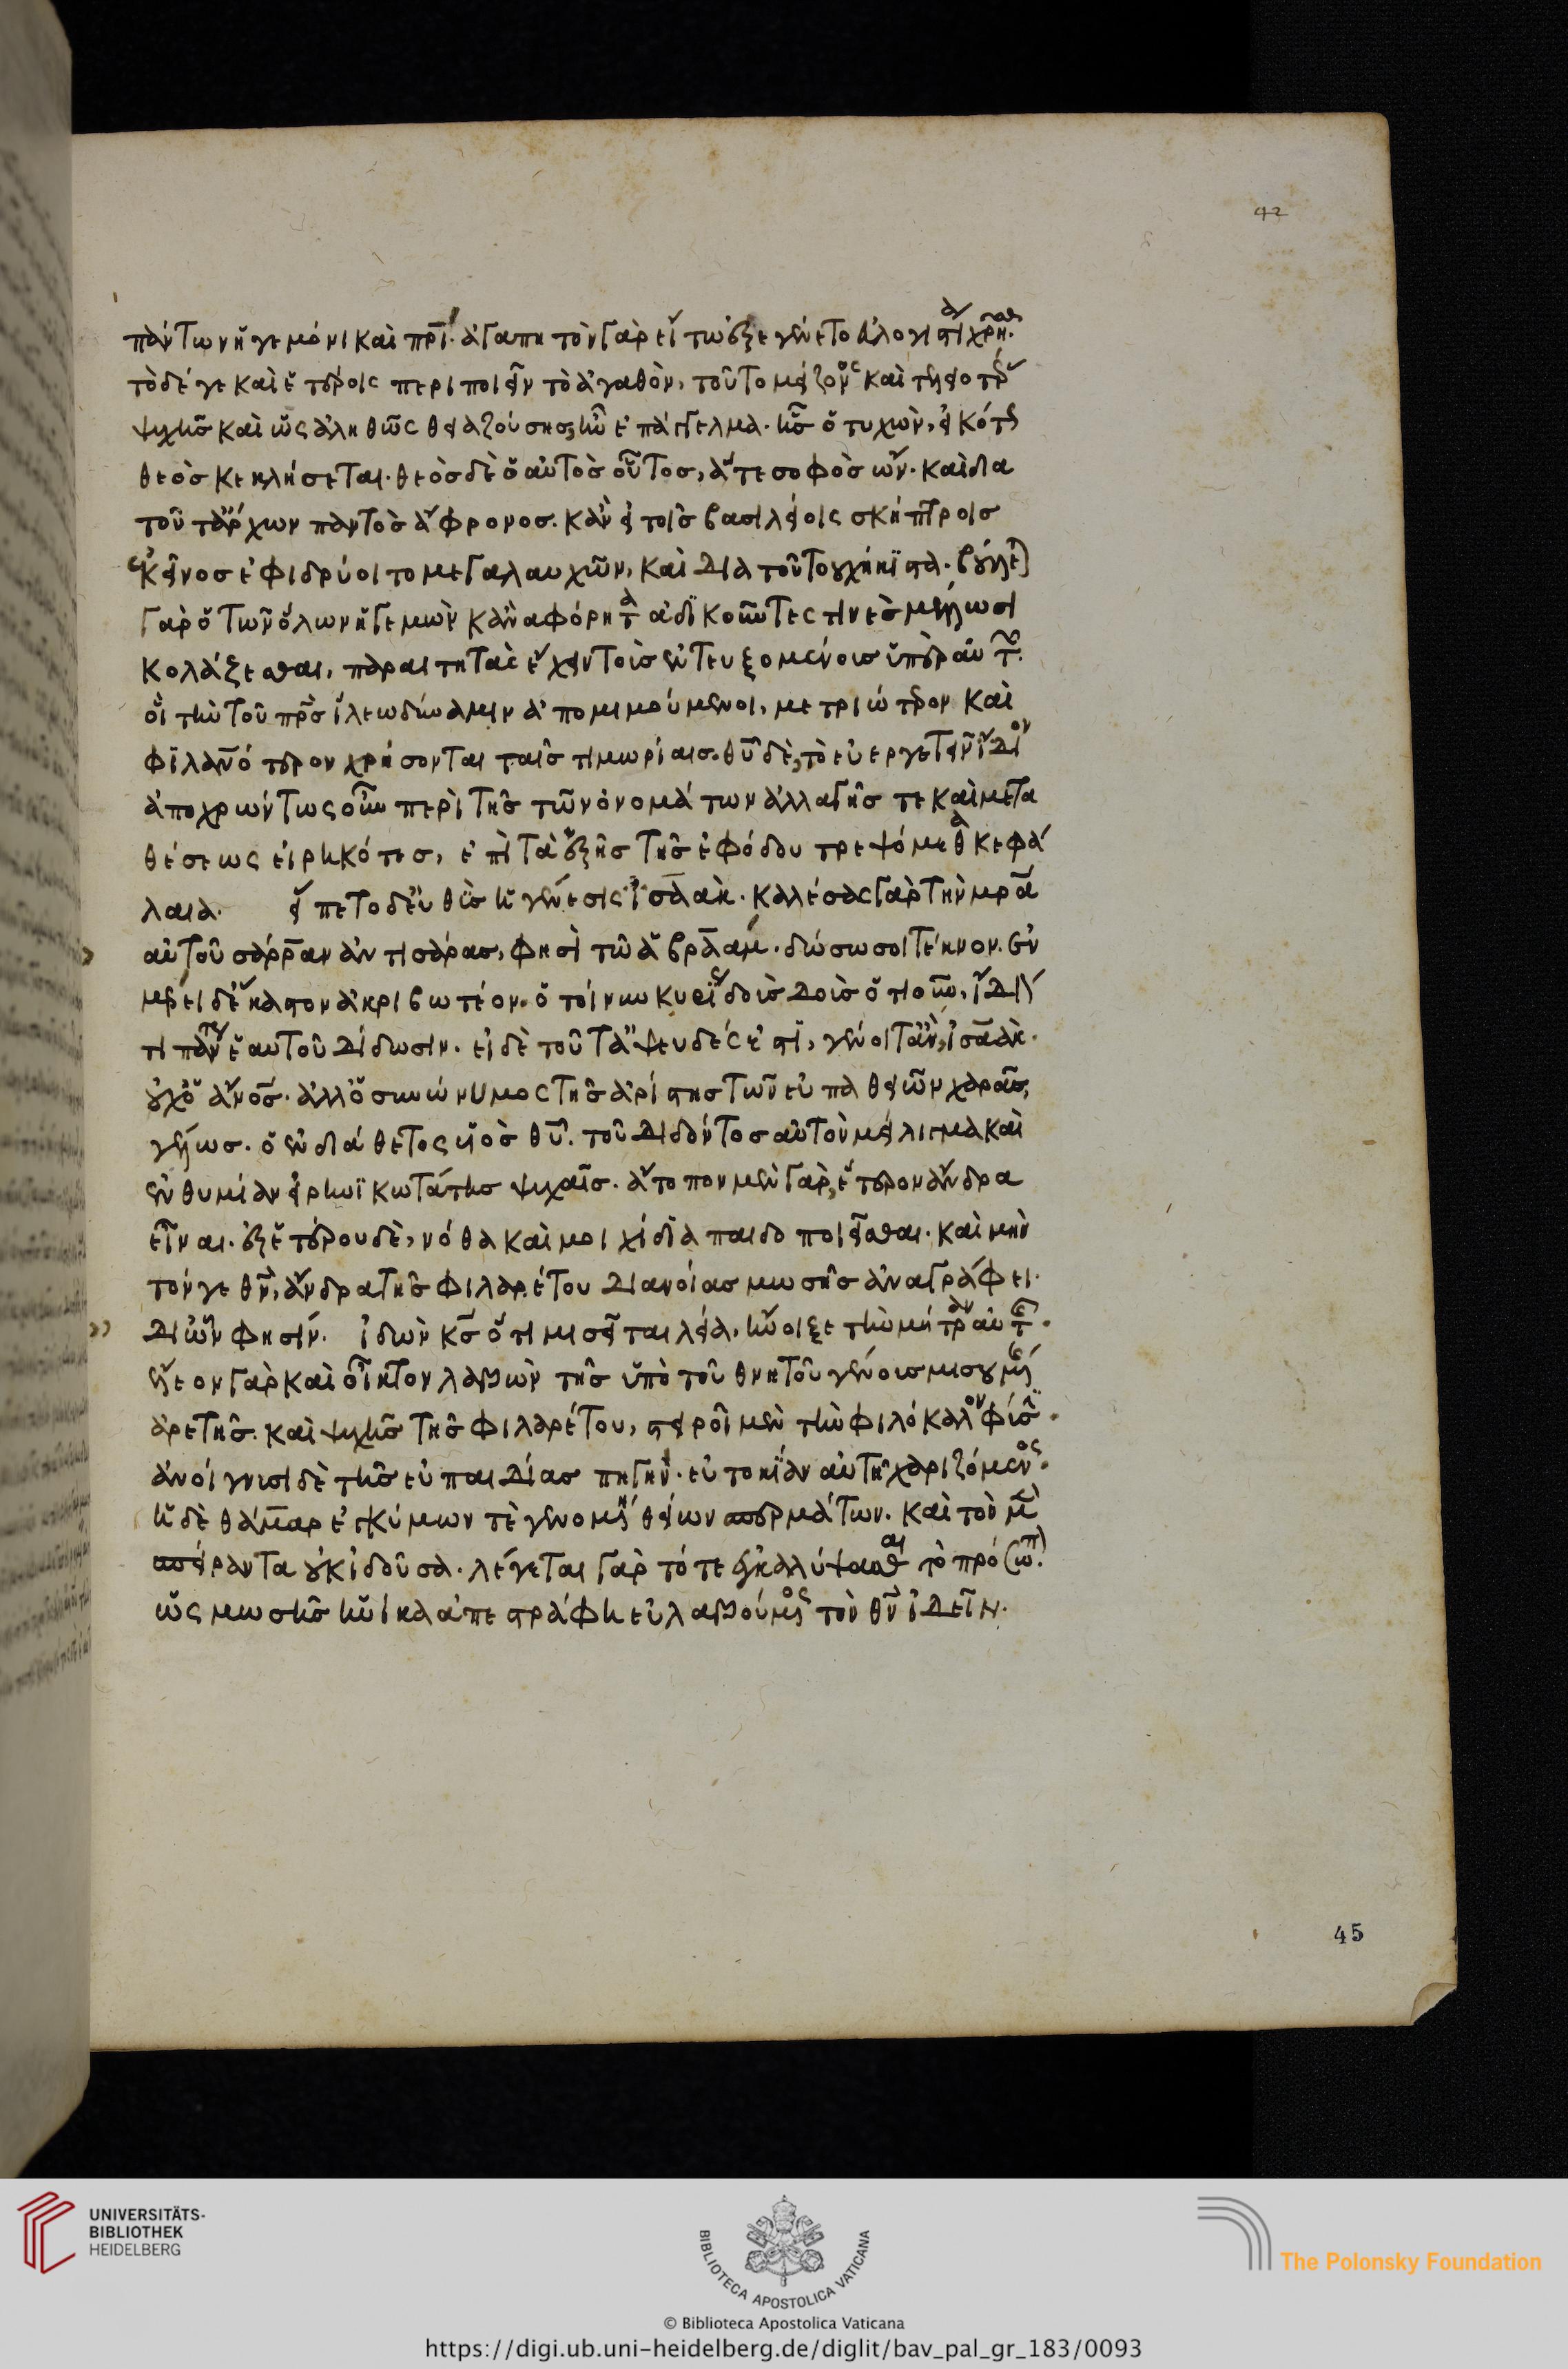 πάντων ἡγεμόνι καὶ πρϊ· ἀγαπητὸν γὰρ εἴ τω ἐξεγένετο ἀλογιστὶ χρῆσθαι·
τὸ δέ γε καὶ ἑτέροις περιποιεῖν τὸ ἀγαθὸν, τοῦτο μείζονος καὶ τελειοτέρ
ψυχῆς καὶ ὡς ἀληθῶς θειαζούσης, ἦν ἐπάγγελμα· ἧς ὁ τυχὼν, εἰκότως
θεὸς κεκλήσεται· θεὸς δὲ ὁ αὐτὸς οὗτος, ἅτε σοφὸς ὤν· καὶ δια
τοῦτ᾽ ἄρχων παντὸς ἄφρονος. κἂν εἰ τοῖς βασιλείοις σκήπτροις
ἐκεῖνος ἐφιδρύοιτο μεγαλαυχῶν, καὶ διὰ τοῦτο οὐχ ἥκιστα· βούλεται
γὰρ ὁ τῶν ὅλων ἡγεμὼν κἂν ἀφόρητα ἀδικοῦντες τινὲς μέλλωσι
κολάζεσθαι, παραιτητὰς ἔχειν τοῖς ἐντευξομένοις ὑπὲρ αὐτ.
οἳ τὴν τοῦ πρς ἵλεω δύναμιν ἀπομιμούμενοι, μετριώτερον καὶ
φιλανότερον χρήσονται ταῖς τιμωρίαις. θῦ δὲ, τὸ εὐεργετεῖν ἴδιον
ἀποχρώντως οὖν περὶ τῆς τῶν ὀνομάτων ἀλλαγῆς τε καὶ μετα
θέσεως εἰρηκότες, ἐπὶ τὰ ἑξῆς τῆς ἐφόδου τρεψόμεθα κεφά
λαια. εἵπετο δ᾽ εὐθὺς ἡ γένεσις ἰσαάκ· καλέσας γὰρ τὴν μρα
αὐτοῦ σάρραν ἀντὶ σάρας, φησὶ τῶ ἀβραάμ· δώσω σοι τέκνον. ἐν
μέρει δ᾽ ἕκαστον ἀκριβωτέον. ὁ τοίνυν κυρίως διδοὺς ὁτιοῦν, ἴδιόν
τι πάντως ἑαυτοῦ δίδωσιν. εἰ δὲ τοῦτ᾽ ἀψευδές ἐστι, γένοιτ᾽ ἂν, ἰσαάκ·
οὐχ ὁ ἄνος. ἀλλ᾽ ὁ συνώνυμος τῆς ἀρίστης τῶν εὐπαθειῶν χαρᾶς,
γέλως. ὁ ἐνδιάθετος υἱὸς θῦ. τοῦ διδόντος αὐτὸν μείλιγμα καὶ
εὐθυμίαν εἰρηνικωτάταις ψυχαῖς. ἄτοπον μὲν γὰρ, ἕτερον ἄνδρα
εἶναι. ἐξ ἑτέρου δὲ, νόθα καὶ μοιχίδια παιδοποιεῖσθαι. καὶ μὴν
τόν γε θν, ἄνδρα τῆς φιλαρέτου διανοίας μωσῆς ἀναγράφει·
δι᾽ ὧν φησίν. ἰδὼν κς ὅτι μισεῖται λεία, ἤνοιξε τὴν μήτραν αὐτῆς.
ἔλεον γὰρ καὶ οἶκτον λαβὼν τῆς ὑπὸ τοῦ θνητοῦ γένους μισουμένης
ἀρετῆς. καὶ ψυχῆς τῆς φιλαρέτου, στειροῖ μὲν τὴν φιλόκαλον φύσιν.
ἀνοίγνυσι δὲ τῆς εὐπαιδίας πηγὴν. εὐτοκίαν αὐτῆ χαριζόμενος.
ἡ δὲ θάμαρ ἐγκύμων τὲ γενομένη θείων σπερμάτων. καὶ τὸν μὲν
σπείραντα οὐκ ἰδοῦσα. λέγεται γὰρ τότε ἐγκαλύψασθαι τὸ πρόσωπ.
ὡς μωσῆς ἡνίκα ἀπεστράφη εὐλαβούμενος τὸν θν ἰδεῖν.
42
45
UNIVERSITÄTS-
BIBLIOTHEK
HEIDELBERG
BIBLIOTECA APOSTOLICA VATICANA
The Polonsky Foundation
© Biblioteca Apostolica Vaticana
https://digi.ub.uni-heidelberg.de/diglit/bav_pal_gr_183/0093